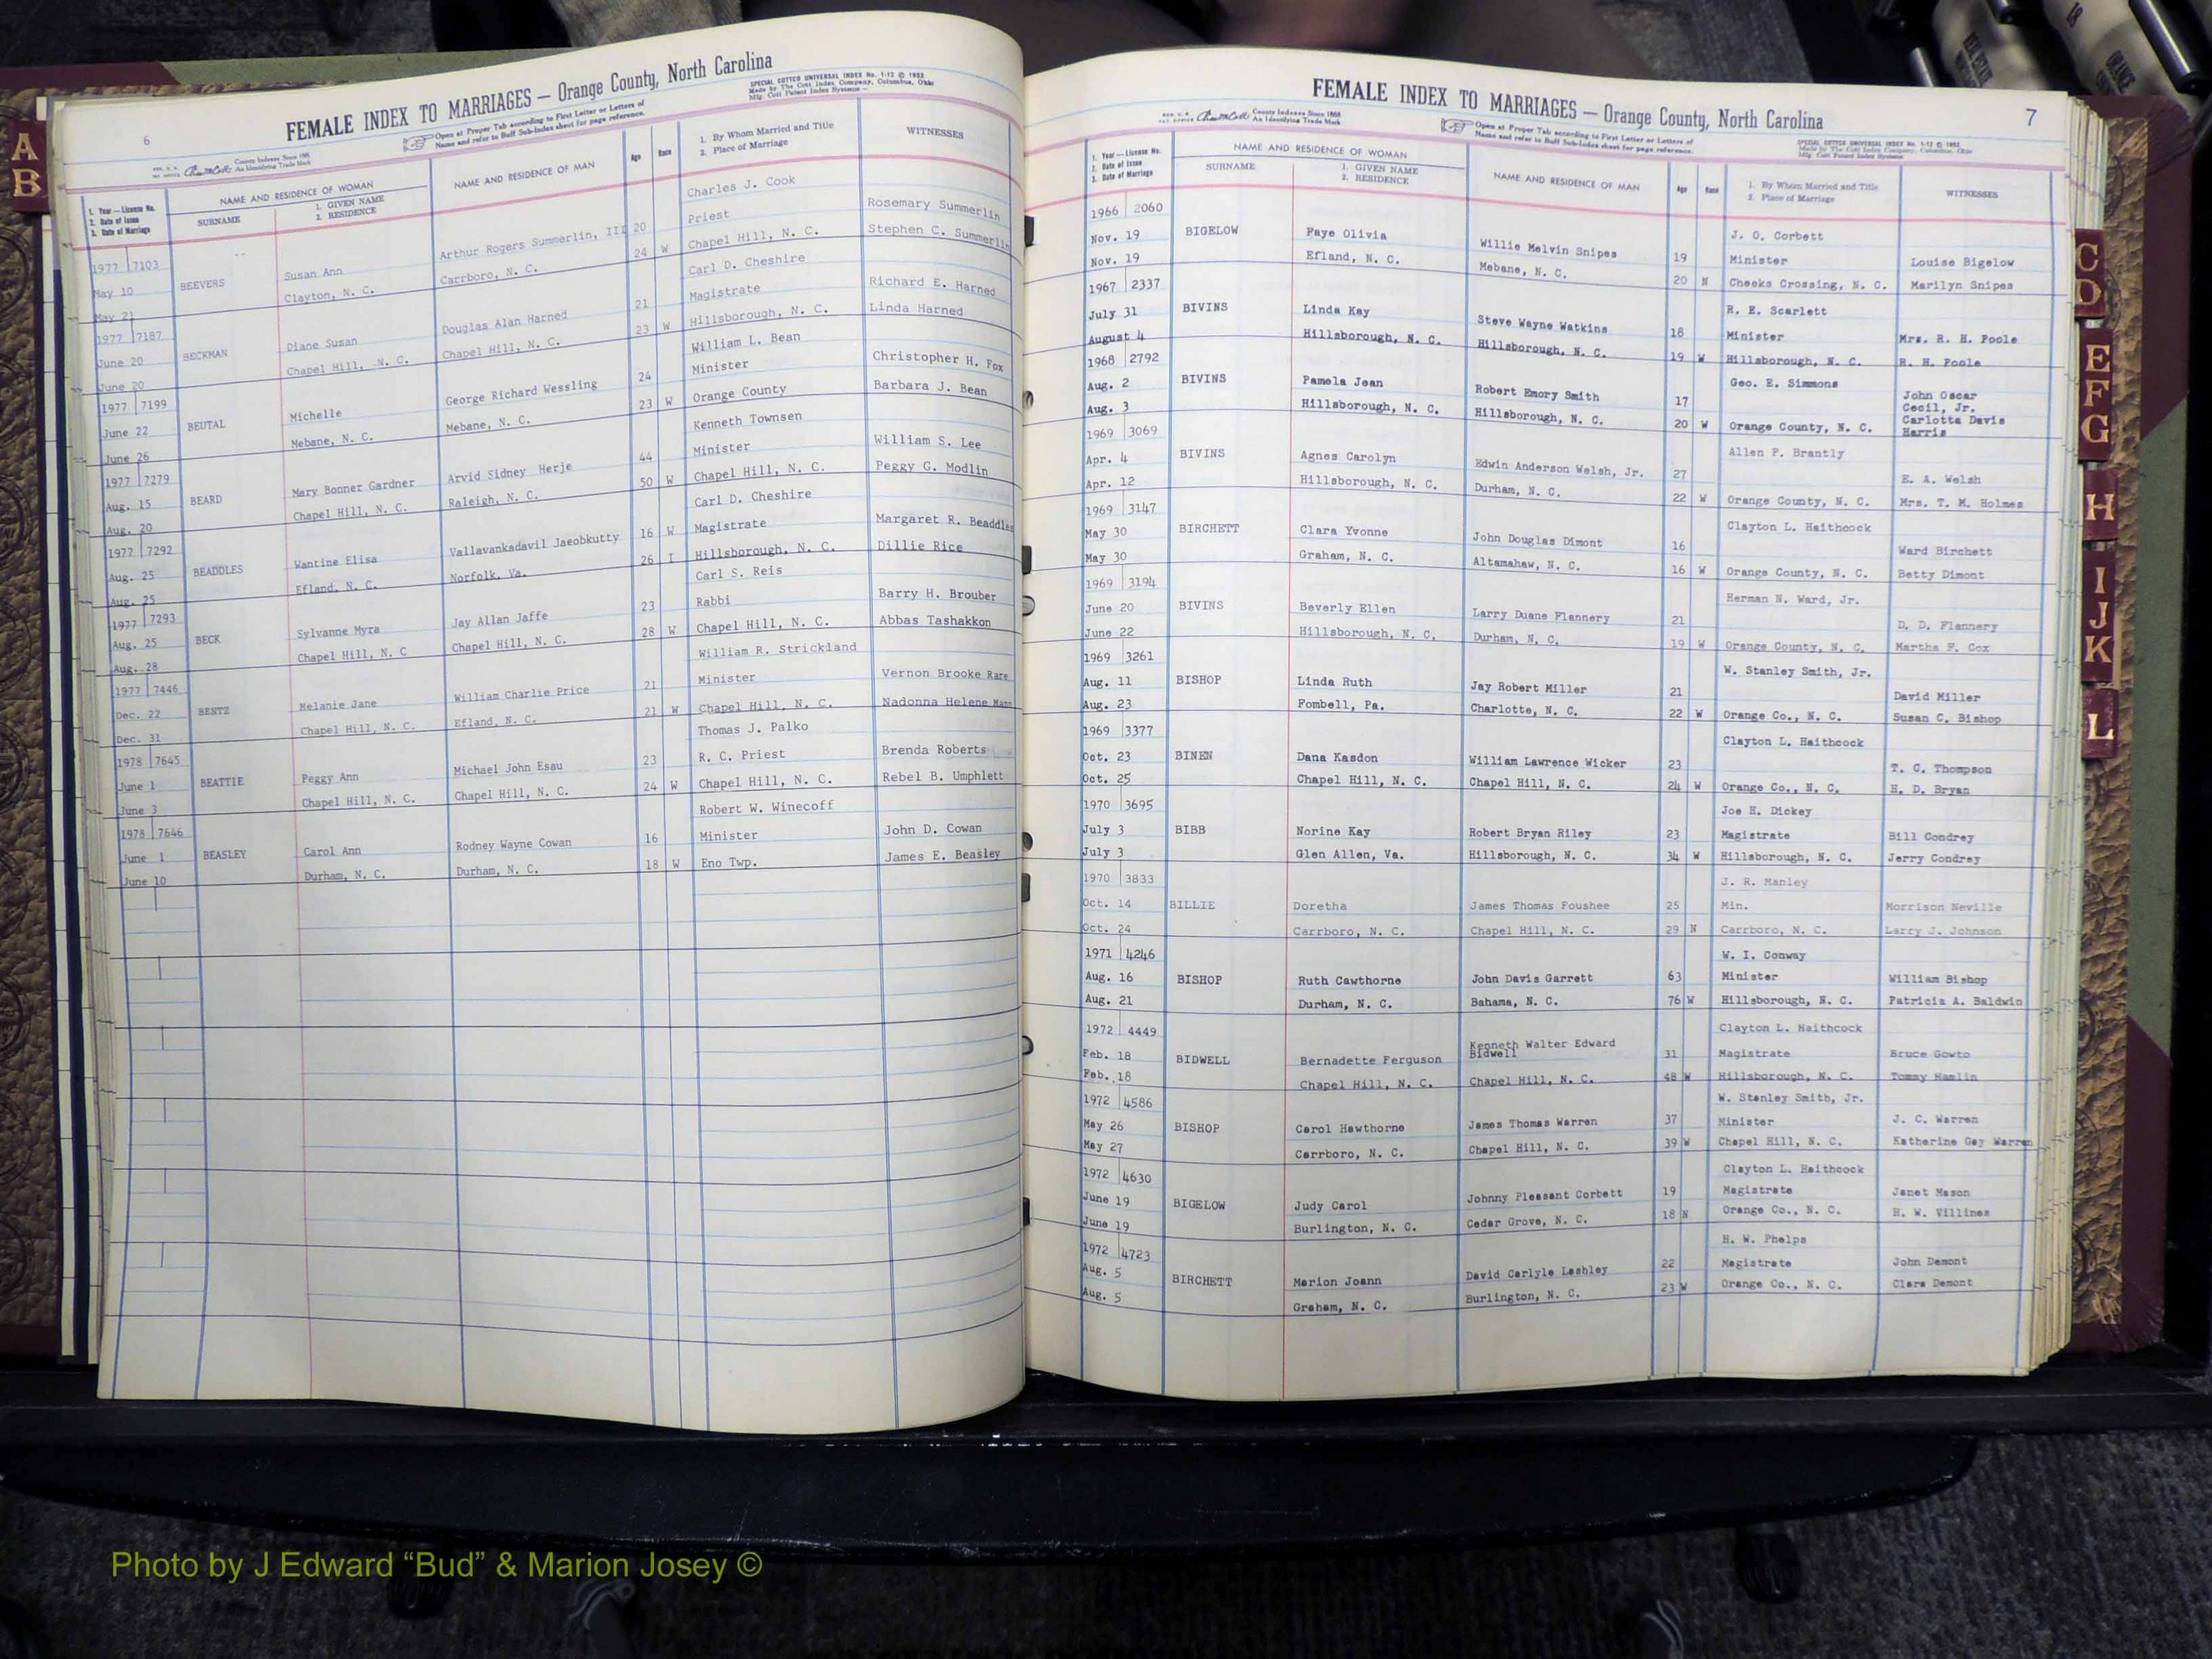 6
FEMALE INDEX TO MARRIAGES — Orange County, North Carolina
SPECIAL COTTCO UNIVERSAL INDEX No. 1-12 © 1952
Made by The Cott Index Company, Columbus, Ohio
Open at Proper Tab according to First Letter or Letters of
Name and refer to Buff Sub-Index sheet for page reference.
County Indexes Since 1888
An Identifying Trade Mark
1. Year — License No.
2. Date of Issue
3. Date of Marriage
NAME AND RESIDENCE OF WOMAN
SURNAME
1. GIVEN NAME
2. RESIDENCE
NAME AND RESIDENCE OF MAN
Age
Race
1. By Whom Married and Title
2. Place of Marriage
WITNESSES
Charles J. Cook
1977 7103 Arthur Rogers Summerlin, III 20 Priest Rosemary Summerlin
May 10 BEEVERS Susan Ann Carrboro, N. C. 24 W Chapel Hill, N. C. Stephen C. Summerlin
May 21 Clayton, N. C.
Carl D. Cheshire
1977 7187 Douglas Alan Harned 21 Magistrate Richard E. Harned
June 20 BECKMAN Diane Susan Chapel Hill, N. C. 23 W Hillsborough, N. C. Linda Harned
June 20 Chapel Hill, N. C.
William L. Bean
1977 7199 George Richard Wessling 24 Minister Christopher H. Fox
June 22 BEUTAL Michelle Mebane, N. C. 23 W Orange County Barbara J. Bean
June 26 Mebane, N. C.
Kenneth Townsen
1977 7279 Arvid Sidney Herje 44 Minister William S. Lee
Aug. 15 BEARD Mary Bonner Gardner Raleigh, N. C. 50 W Chapel Hill, N. C. Peggy G. Modlin
Aug. 20 Chapel Hill, N. C.
Carl D. Cheshire
1977 7292 Vallavankadavil Jaeobkutty 16 W Magistrate Margaret R. Beaddles
Aug. 25 BEADDLES Wantine Elisa Norfolk, Va. 26 I Hillsborough, N. C. Dillie Rice
Aug. 25 Efland, N. C.
Carl S. Reis
1977 7293 Jay Allan Jaffe 23 Rabbi Barry H. Brouber
Aug. 25 BECK Sylvanne Myra Chapel Hill, N. C. 28 W Chapel Hill, N. C. Abbas Tashakkon
Aug. 28 Chapel Hill, N. C
William R. Strickland
1977 7446 William Charlie Price 21 Minister Vernon Brooke Rare
Dec. 22 BENTZ Melanie Jane Efland, N. C. 21 W Chapel Hill, N. C. Nadonna Helene
Dec. 31 Chapel Hill, N. C.
Thomas J. Palko
1978 7645 Michael John Esau 23 R. C. Priest Brenda Roberts
June 1 BEATTIE Peggy Ann Chapel Hill, N. C. 24 W Chapel Hill, N. C. Rebel B. Umphlett
June 3 Chapel Hill, N. C.
Robert W. Winecoff
1978 7646 Rodney Wayne Cowan 16 Minister John D. Cowan
June 1 BEASLEY Carol Ann Durham, N. C. 18 W Eno Twp. James E. Beasley
June 10 Durham, N. C.
7
FEMALE INDEX TO MARRIAGES — Orange County, North Carolina
County Indexes Since 1888
An Identifying Trade Mark
Open at Proper Tab according to First Letter or Letters of
Name and refer to Buff Sub-Index sheet for page reference.
SPECIAL COTTCO UNIVERSAL INDEX No. 1-12 © 1952
Made by The Cott Index Company, Columbus, Ohio
1. Year — License No.
2. Date of Issue
3. Date of Marriage
NAME AND RESIDENCE OF WOMAN
SURNAME
1. GIVEN NAME
2. RESIDENCE
NAME AND RESIDENCE OF MAN
Age
Race
1. By Whom Married and Title
2. Place of Marriage
WITNESSES
1966 2060 J. O. Corbett
Nov. 19 BIGELOW Faye Olivia Willie Melvin Snipes 19 Minister Louise Bigelow
Nov. 19 Efland, N. C. Mebane, N. C. 20 N Cheeks Crossing, N. C. Marilyn Snipes
1967 2337 R. E. Scarlett
July 31 BIVINS Linda Kay Steve Wayne Watkins 18 Minister Mrs. R. H. Poole
August 4 Hillsborough, N. C. Hillsborough, N. C. 19 W Hillsborough, N. C. R. H. Poole
1968 2792 Geo. E. Simmons
Aug. 2 BIVINS Pamela Jean Robert Emory Smith 17 John Oscar
Cecil, Jr.
Aug. 3 Hillsborough, N. C. Hillsborough, N. C. 20 W Orange County, N. C. Carlotta Davis
Harris
1969 3069 Allen P. Brantly
Apr. 4 BIVINS Agnes Carolyn Edwin Anderson Welsh, Jr. 27 E. A. Welsh
Apr. 12 Hillsborough, N. C. Durham, N. C. 22 W Orange County, N. C. Mrs. T. M. Holmes
1969 3147 Clayton L. Haithcock
May 30 BIRCHETT Clara Yvonne John Douglas Dimont 16 Ward Birchett
May 30 Graham, N. C. Altamahaw, N. C. 16 W Orange County, N. C. Betty Dimont
1969 3194 Herman N. Ward, Jr.
June 20 BIVINS Beverly Ellen Larry Duane Flannery 21 D. D. Flannery
June 22 Hillsborough, N. C. Durham, N. C. 19 W Orange County, N. C. Martha F. Cox
1969 3261 W. Stanley Smith, Jr.
Aug. 11 BISHOP Linda Ruth Jay Robert Miller 21 David Miller
Aug. 23 Fombell, Pa. Charlotte, N. C. 22 W Orange Co., N. C. Susan C. Bishop
1969 3377 Clayton L. Haithcock
Oct. 23 BINEN Dana Kasdon William Lawrence Wicker 23 T. C. Thompson
Oct. 25 Chapel Hill, N. C. Chapel Hill, N. C. 24 W Orange Co., N. C. H. D. Bryan
1970 3695 Joe H. Dickey
July 3 BIBB Norine Kay Robert Bryan Riley 23 Magistrate Bill Condrey
July 3 Glen Allen, Va. Hillsborough, N. C. 34 W Hillsborough, N. C. Jerry Condrey
1970 3833 J. R. Manley
Oct. 14 BILLIE Doretha James Thomas Foushee 25 Min. Morrison Neville
Oct. 24 Carrboro, N. C. Chapel Hill, N. C. 29 N Carrboro, N. C. Larry J. Johnson
1971 4246 W. I. Conway
Aug. 16 BISHOP Ruth Cawthorne John Davis Garrett 63 Minister William Bishop
Aug. 21 Durham, N. C. Bahama, N. C. 76 W Hillsborough, N. C. Patricia A. Baldwin
1972 4449 Clayton L. Haithcock
Feb. 18 BIDWELL Bernadette Ferguson Kenneth Walter Edward
Bidwell 31 Magistrate Bruce Gowto
Feb. 18 Chapel Hill, N. C. Chapel Hill, N. C. 48 W Hillsborough, N. C. Tommy Hamlin
1972 4586 W. Stanley Smith, Jr.
May 26 BISHOP Carol Hawthorne James Thomas Warren 37 Minister J. C. Warren
May 27 Carrboro, N. C. Chapel Hill, N. C. 39 W Chapel Hill, N. C. Katherine Gay Warren
1972 4630 Clayton L. Haithcock
June 19 BIGELOW Judy Carol Johnny Pleasant Corbett 19 Magistrate Janet Mason
June 19 Burlington, N. C. Cedar Grove, N. C. 18 N Orange Co., N. C. H. W. Villines
1972 4723 H. W. Phelps
Aug. 5 BIRCHETT Marion Joann David Carlyle Lashley 22 Magistrate John Demont
Aug. 5 Graham, N. C. Burlington, N. C. 23 W Orange Co., N. C. Clara Demont
A
B
C
D
E
F
G
H
I
J
K
L
18
Photo by J Edward “Bud” & Marion Josey ©